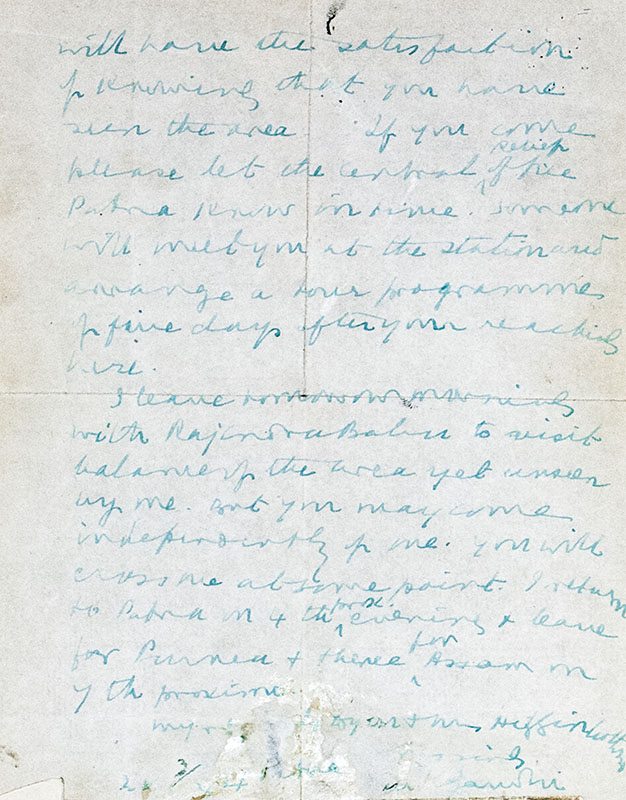 will have the satisfaction
of knowing that you have
seen the area. If you come
please let the central relief office
Patna know in time. Someone
will meet you at the station and
arrange a tour programme
of five days after your reaching
here.
I leave tomorrow morning
with Rajendra Babu to visit
balance of the area yet unseen
by me. But you may come
independently of me. You will
cross me at some point. I return
to Patna on 4th prox. evening & leave
for Purnea & thence for Assam on
7th proximo
my to you & Mrs Higginbottom
Gandhi